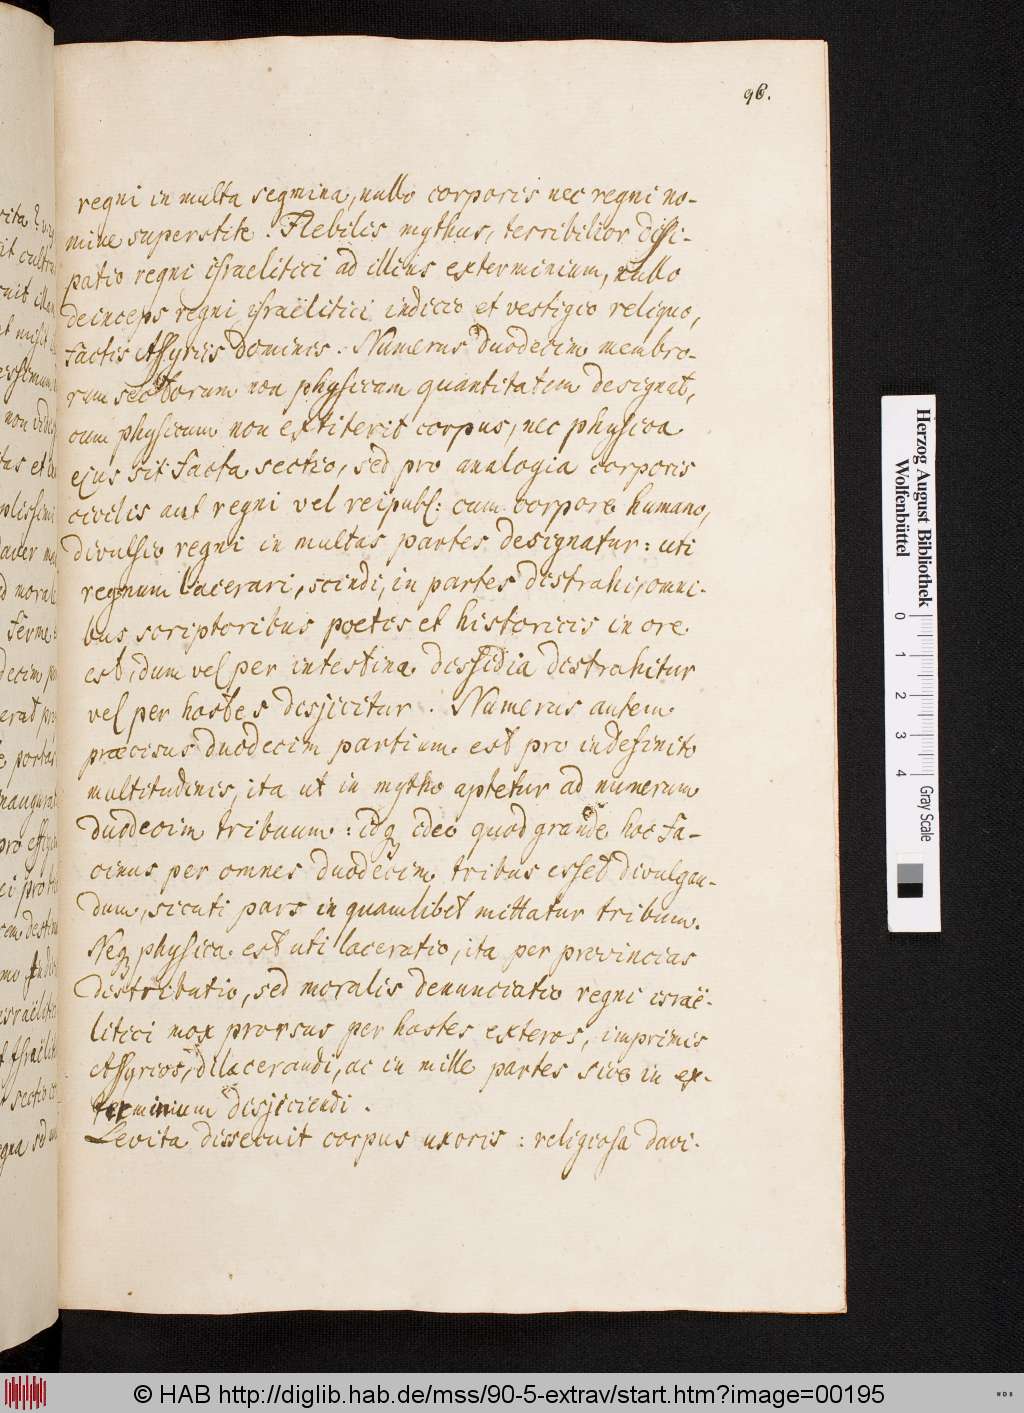 96.
regni in multa segmina, nullo corporis nec regni no-
mine superstite. Flebilis mythus, terribilior dissi-
patio regni israelitici ad illius exterminium, nullo
deinceps regni israëlitici indicio et vestigio reliquo,
factis Assyriis dominis. Numerus duodecim membro-
rum sectorum non physicam quantitatem designat,
cum physicum non extiterit corpus, nec physica
ejus sit facta sectio, sed pro analogia corporis
civilis aut regni vel reipubl: cum corpore humano,
divulsio regni in multas partes designatur: uti
regnum lacerari, scindi, in partes distrahi, omni-
bus scriptoribus poetis et historicis in ore
est, dum vel per intestina dissidia distrahitur
vel per hostes disjicitur. Numerus autem
præcisus duodecim partium est pro indefinito
multitudinis, ita ut in mytho aptetur ad numerum
duodecim tribuum: idq ideo quod grande hoc fa-
cinus per omnes duodecim tribus esset divulgan-
dum, sicuti pars in quamlibet mittatur tribum.
Neq physica est uti laceratio, ita per provincias
distributio, sed moralis denunciatio regni israë-
litici mox prorsus per hostes exteros, imprimis
Assyrios, dilacerandi, ac in mille partes sive in ex-
terminium disjiciendi.
Levita dissecuit corpus uxoris: religiosa davi-
Herzog August Bibliothek
Wolfenbüttel
0 1 2 3 4 Gray Scale
© HAB http://diglib.hab.de/mss/90-5-extrav/start.htm?image=00195
WDB